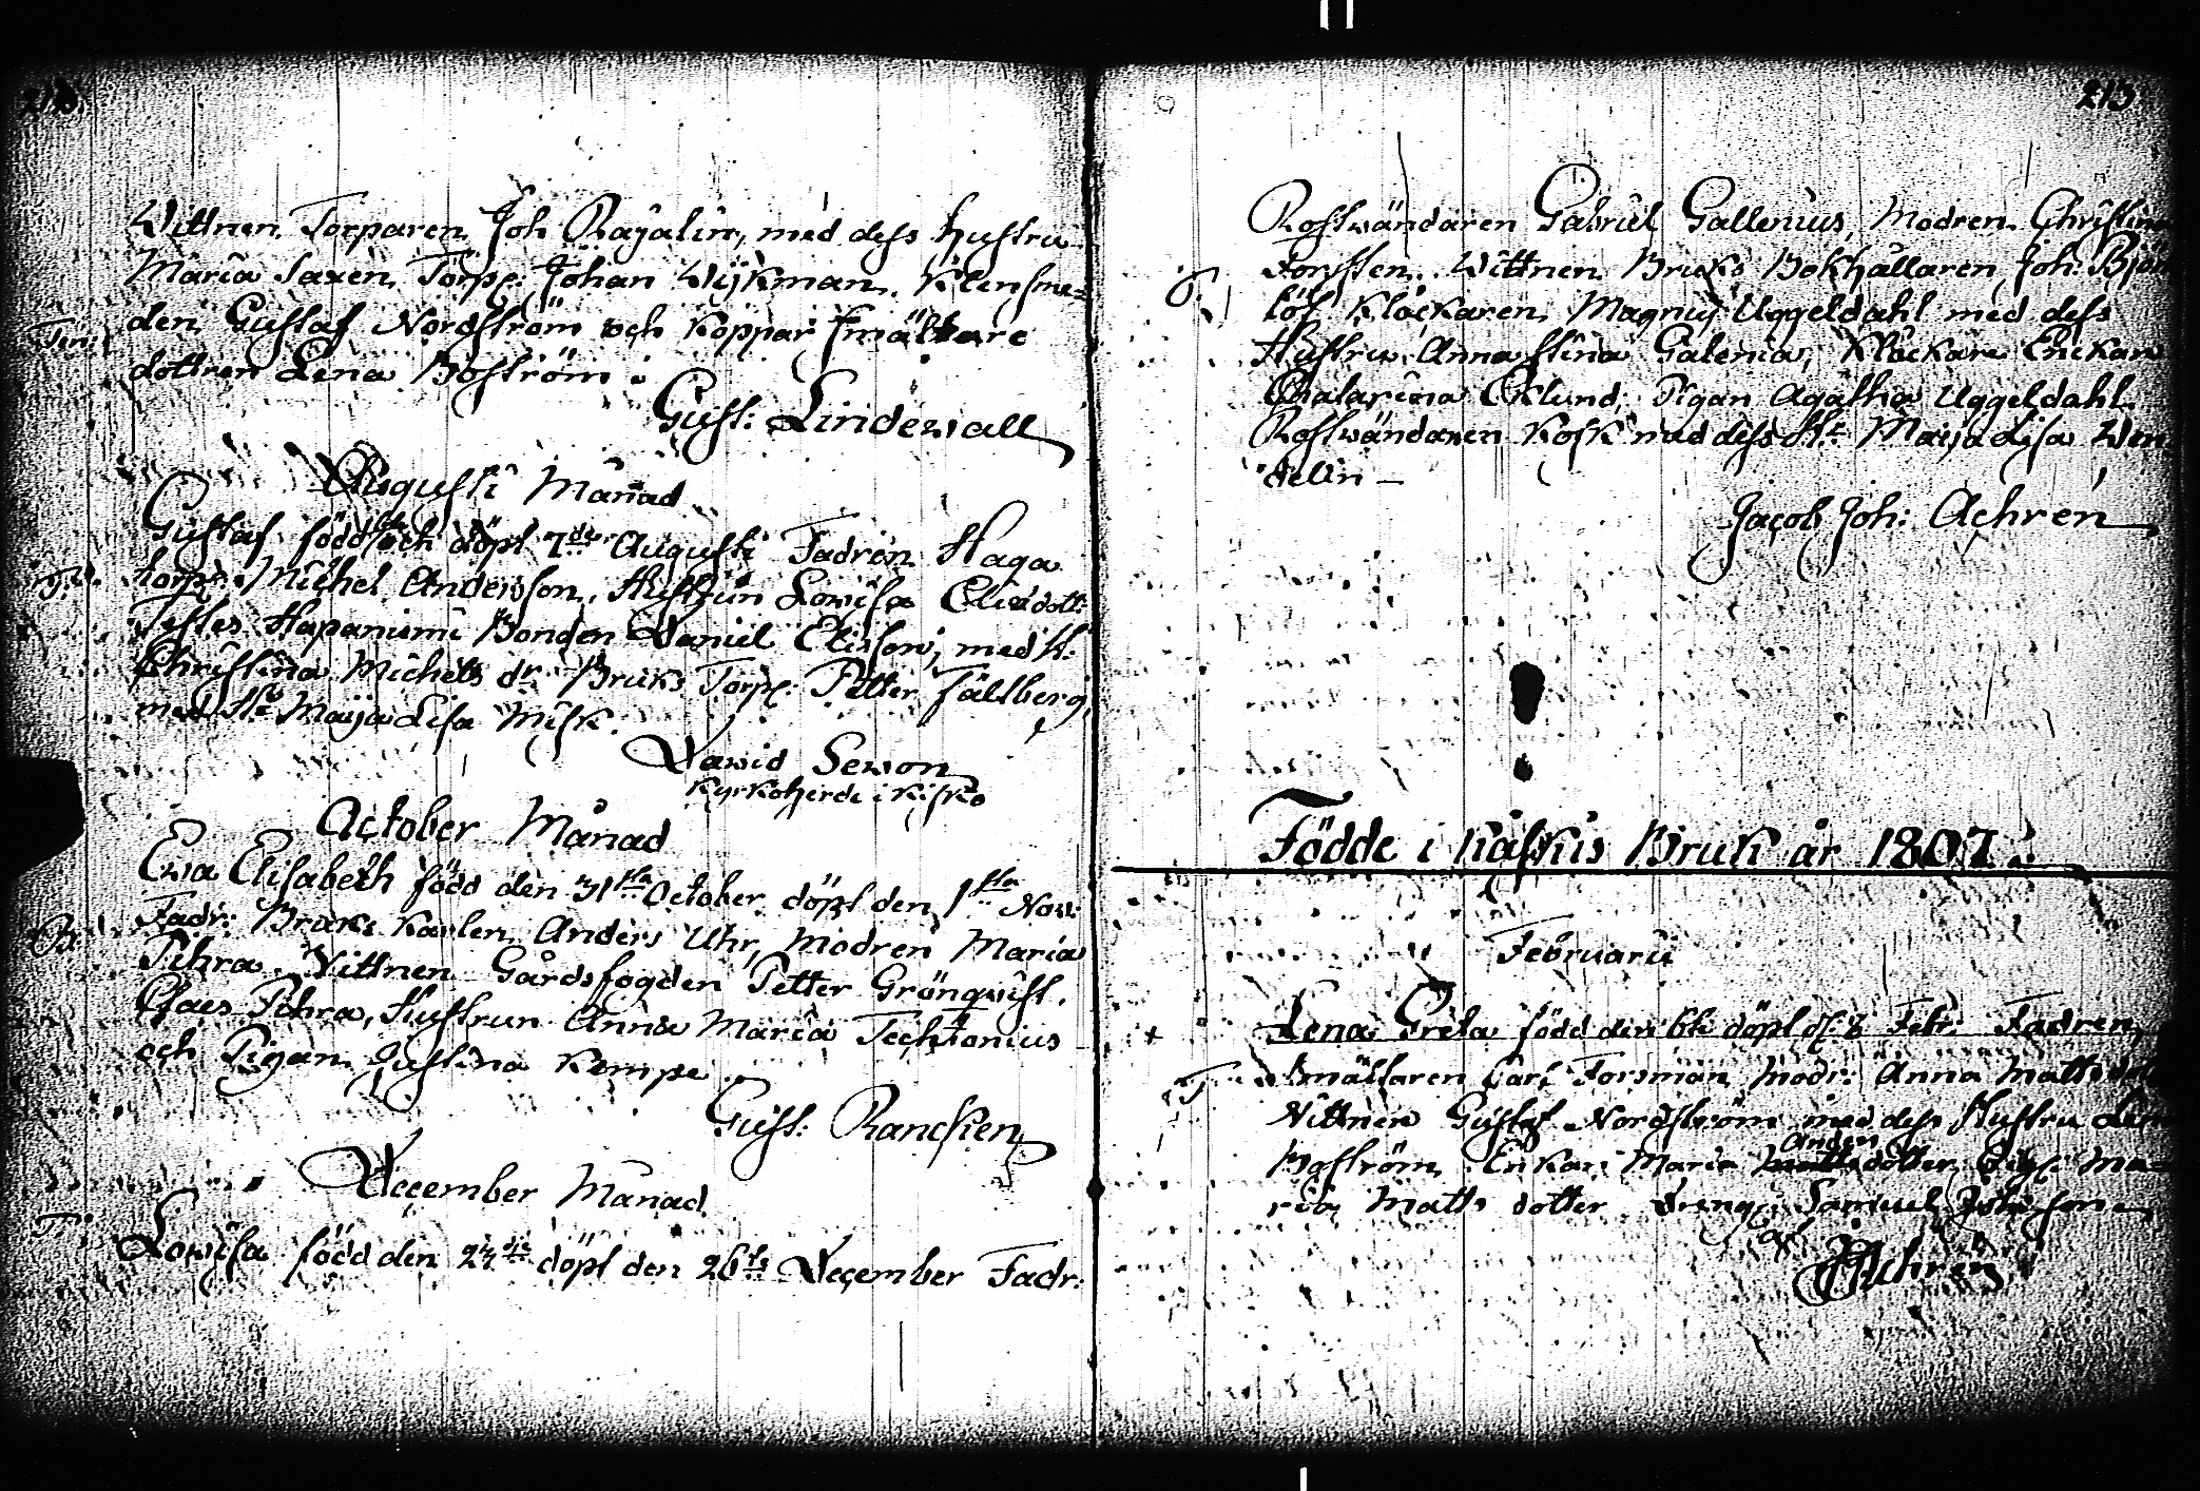 212
Wittnen Torparen Joh Rajalin, med dess hustru
Maria Saxen, Torp: Johan Wijkman, Klensme=
den Gustaf Nordström och Koppar smältare
dottren Lena Boström.
Gust: Lindewall
Augusti Månad
Gustaf född och döpt 7de Augusti Fadren Haga
torp: Michel Andersson, Hustrun Lowisa Eliedott:
Testes Hapaniemi Bonden Daniel Elisson, med H:
Christina Michels dr Bruks Torp: Petter Fältberg,
med Hu Maija Lisa Misk.
Dawid Sewon
Kyrkoherde i Kisko
October Månad
Ewa Elisabeth född den 31sta October döpt den 1sta Nov:
Fadr: Bruks Karlen Anders Uhr, Modren Maria
Pihra. Wittnen Gårdsfogden Petter Grönqwist,
Claes Pihra, Hustrun Anna Maria Techtonius
och Pigan Justina Kempe
Gust: Rancken
December Månad
T:
Lowisa född den 24de döpt den 26te December Fadr:
213
Rostwändaren Gabriel Gallenius, Modren Christina
Forssten. Wittnen Bruks Bokhållaren Joh: Björk
löf Klåckaren Magnus Uggeldahl med dess
Hustru Anna Stina Galenia, Klåckare Enckan
Chatarina Eklund, Pigan Agatha Uggeldahl
Rostwändaren Kosk med dess H: Maija Lisa Wen
delin
Jacob Joh: Achrén
Födde i Kåskis Bruk år 1807.
Februarii
+
Lena Greta född den 6te döpt d: 8 Febr: Fadren
T
Smältaren Carl Forsman Modr: Anna Matts dotter
Wittnen Gustaf Nordström med dess Hustru Lena
Boström Enkan Maria Anders dotter Ma=
ria Matts dotter Dreng: Samuel Johansson
Achrén